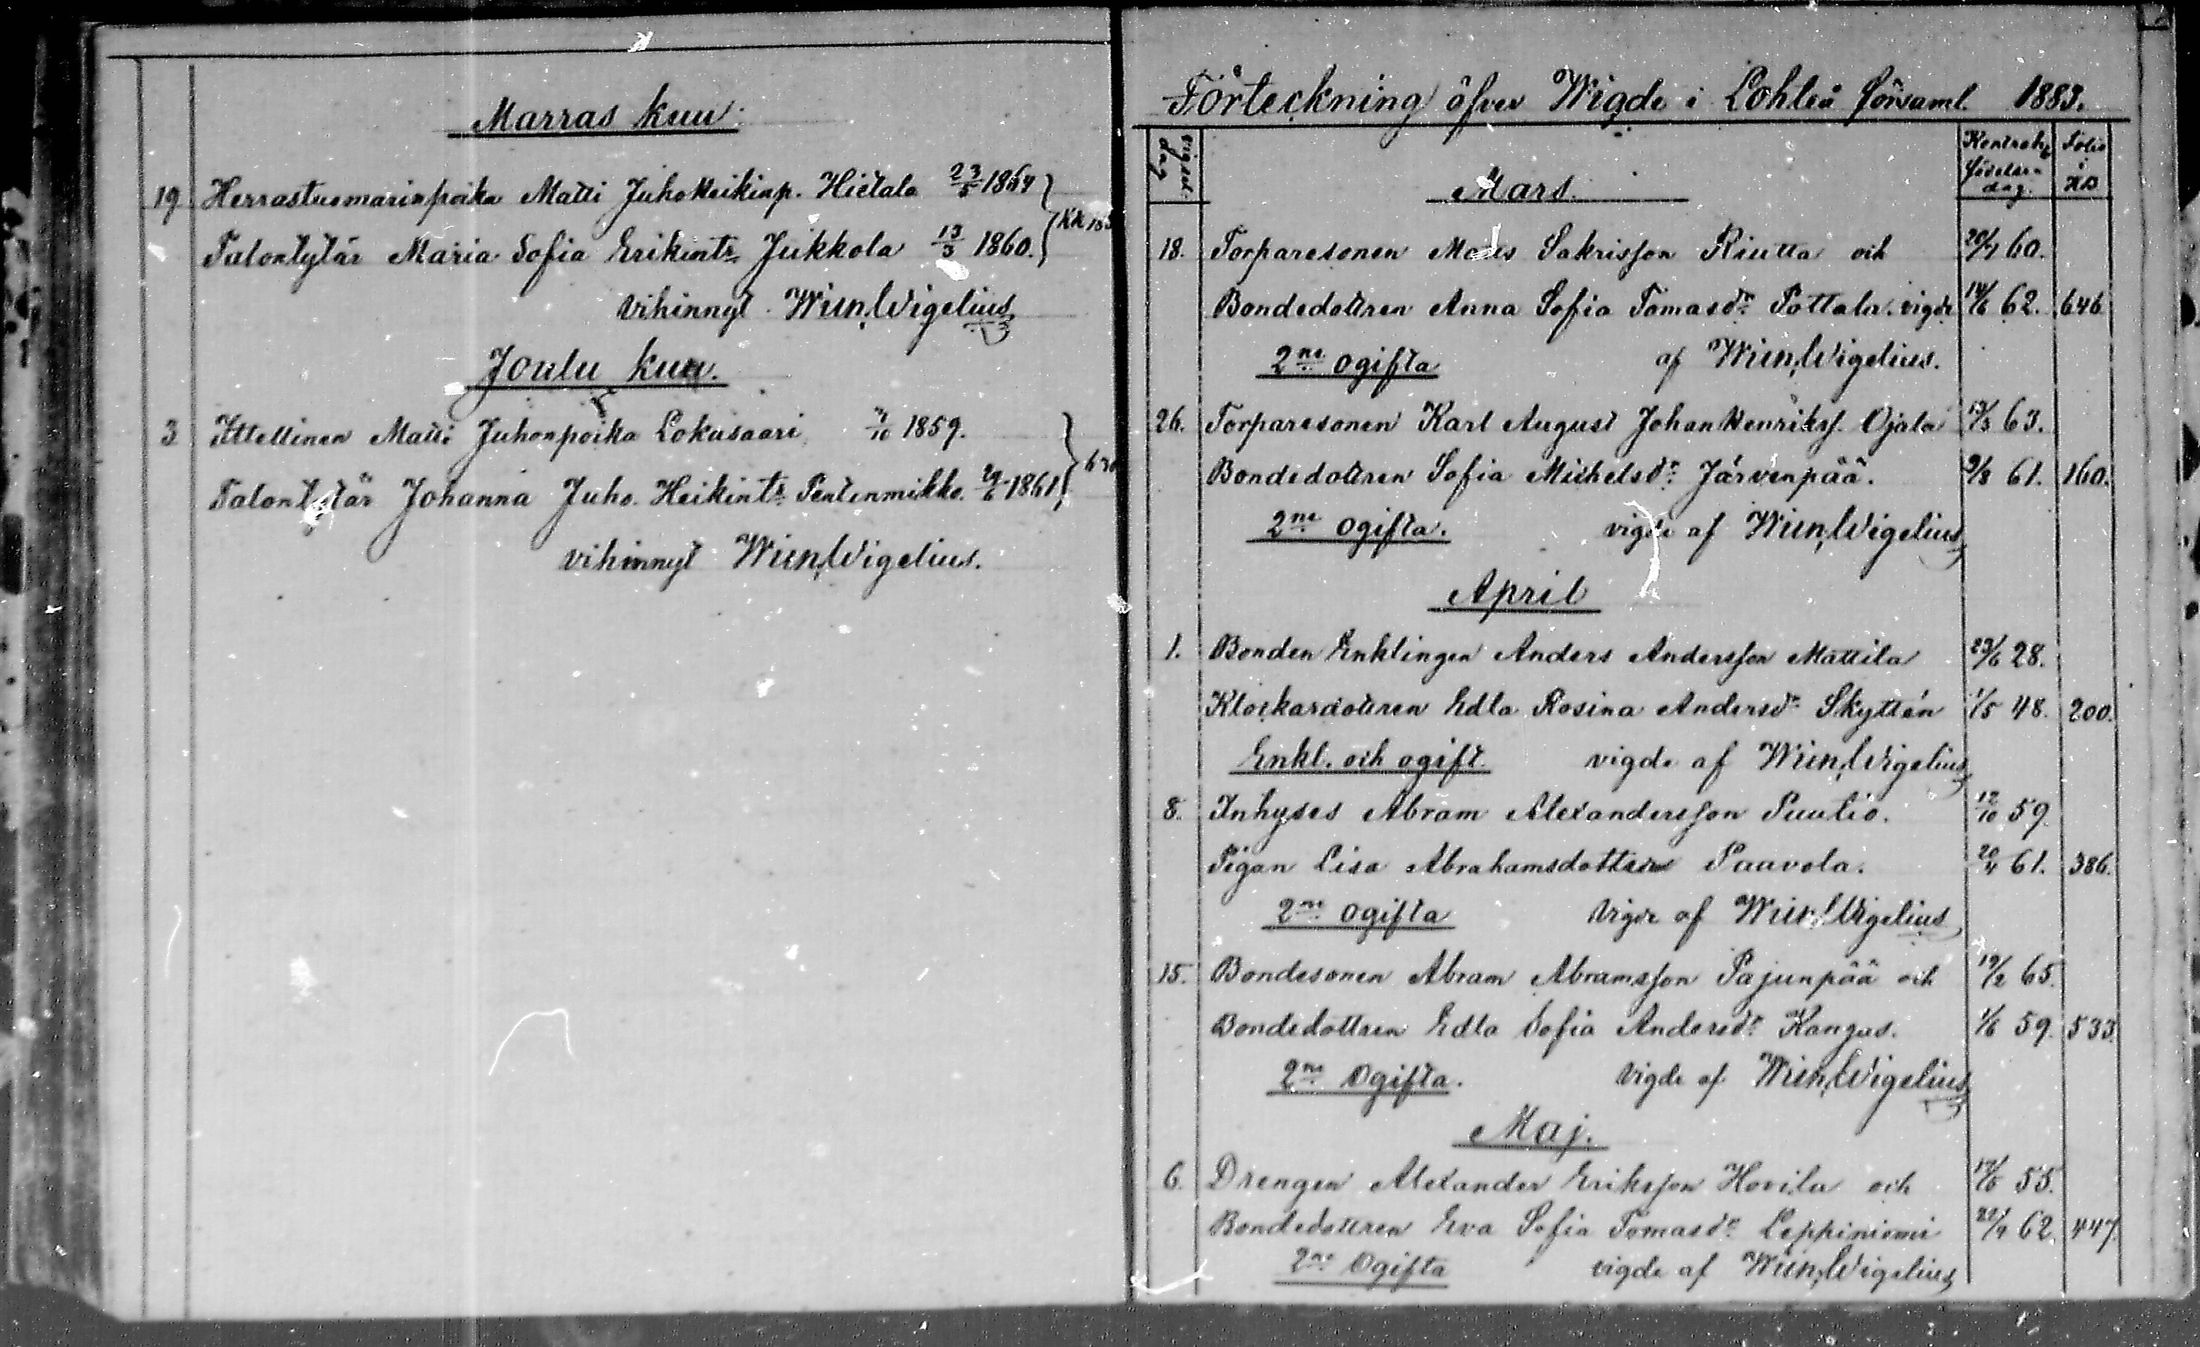 Marras kuu.
19 Herrastuomarinpoika Matti JuhoHeikinp. Hietala 23/5 1864
Talontytär Maria Sofia Erikints Jukkola 13/3 1860. KK 185
vihinnyt Wiin,Wigelius
Joulu kuu.
3 Ittellinen Matti Juhonpoika Lokasaari 7/10 1859.
Talontytär Johanna Juho. Heikints Pentinmikko. 29/6 1861 630
vihinnyt Wiin,Wigelius.
Förteckning öfver Wigde i Lohteå församl. 1883.
Vigsel. dag
Kontrah. födelse-dag.
Folio i KB
Mars.
18. Torparesonen Matts Sakrisson Riutta och 20/7 60.
Bondedottren Anna Sofia Tomasdr Pottala. vigde 14/6 62. 646
2ne ogifta af Wiin,Wigelius.
26. Torparesonen Karl August Johan Henrikss. Ojala 13/3 63.
Bondedottren Sofia Michelsdr Järvenpää. 9/8 61. 160.
2ne ogifta. vigde af Wiin,Wigelius
April
1. Bonden Enklingen Anders Andersson Mattila 23/6 28.
Klockardottren Edla Rosina Andersdr Skyttén 1/5 48. 200.
Enkl. och ogift. vigde af Wiin,Wigelius
8. Inhyses Abram Alexandersson Puulio. 12/10 59
Pigan Lisa Abrahamsdotter Paavola. 20/4 61. 386.
2ne ogifta Vigde af Wiin,Wigelius
15. Bondesonen Abram Abramsson Pajunpää och 19/2 65.
Bondedottren Edla Sofia Andersdr Kangas. 1/6 59. 533
2ne Ogifta. Vigde af Wiin,Wigelius
Maj.
6. Drengen Alexander Eriksson Hovila och 17/5 55.
Bondedottren Eva Sofia Tomasdr Leppiniemi 22/9 62 447.
2ne Ogifta vigde af Wiin,Wigelius